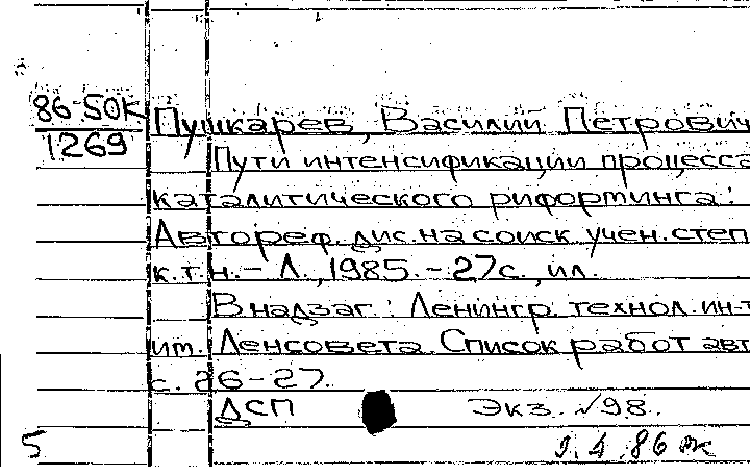 86-50К
1269
Пушкарев, Василий Петрович
Пути интенсификации процесса
каталитического рифортинга:
Автореф. дис. на соиск. учен. степ
к.т.н. - Л., 1985. - 27с., ил.
В надзаг.: Ленингр. технол. ин-т
им. Ленсовета. Список работ авт
с. 26-27.
ДСП Экз. №98.
5 9.4.86